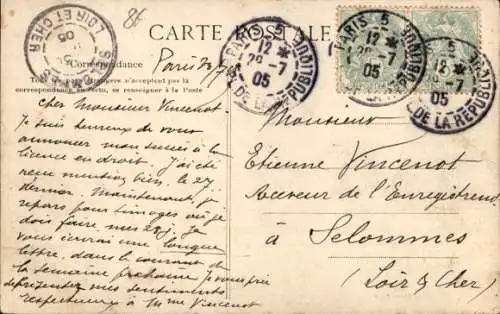 LOIR ET CHER
05
84
CARTE POSTALE
Correspondance
Tous les pays étrangers n'acceptent pas la
correspondance au recto, se renseigner à la Poste
Paris 28/7
PARIS 5
12
28-7
05
PL. DE LA REPUBLIQUE
PARIS 5
12
28-7
05
PL. DE LA REPUBLIQUE
5
12
-7
05
PL. DE LA REPUBLIQUE
Cher Monsieur Vincenot
Je suis heureux de vous
annoncer mon succès à la
licence en droit. J'ai été
reçu mention bien, le 27
dernier. Maintenant, je
repars pour Limoges où je
dois faire mes 28 j. Je
vous écrirai une longue
lettre, dans le courant de
la semaine prochaine. Je vous prie
de présenter mes sentiments
respectueux à Mme Vincenot
Monsieur
Etienne Vincenot
Receveur de l'Enregistrement
à Selommes
(Loir & Cher)